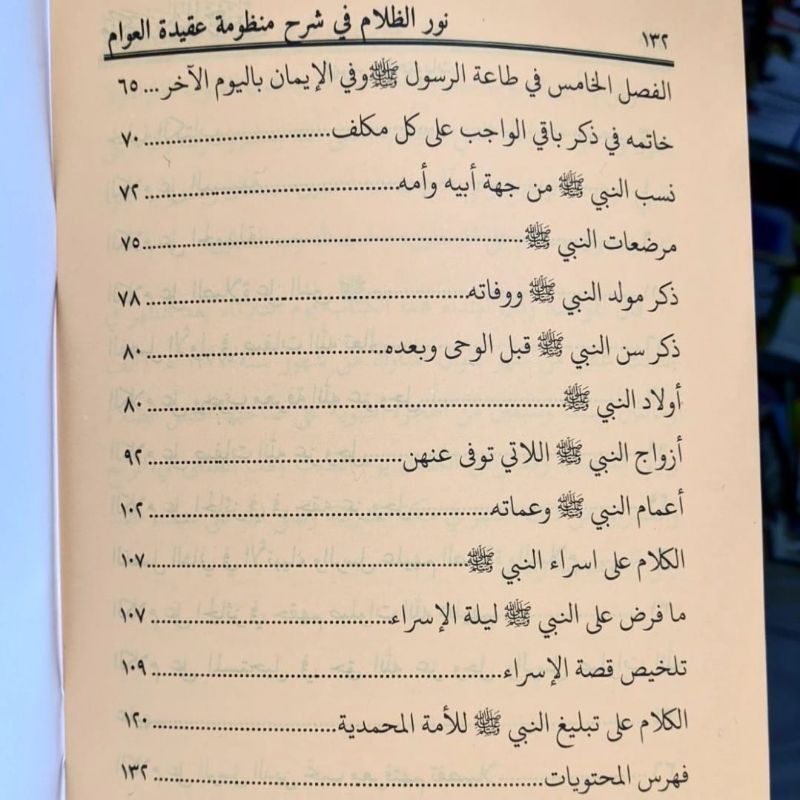 ١٣٢ نور الظلام في شرح منظومة عقيدة العوام
الفصل الخامس في طاعة الرسول ﷺ وفي الإيمان باليوم الآخر ... ٦٥
خاتمه في ذكر باقي الواجب على كل مكلف ... ٧٠
نسب النبي ﷺ من جهة أبيه وأمه ... ٧٢
مرضعات النبي ﷺ ... ٧٥
ذكر مولد النبي ﷺ ووفاته ... ٧٨
ذكر سن النبي ﷺ قبل الوحى وبعده ... ٨٠
أولاد النبي ﷺ ... ٨٠
أزواج النبي ﷺ اللاتي توفى عنهن ... ٩٢
أعمام النبي ﷺ وعماته ... ١٠٢
الكلام على اسراء النبي ﷺ ... ١٠٧
ما فرض على النبي ﷺ ليلة الإسراء ... ١٠٧
تلخيص قصة الإسراء ... ١٠٩
الكلام على تبليغ النبي ﷺ للأمة المحمدية ... ١٢٠
فهرس المحتويات ... ١٣٢